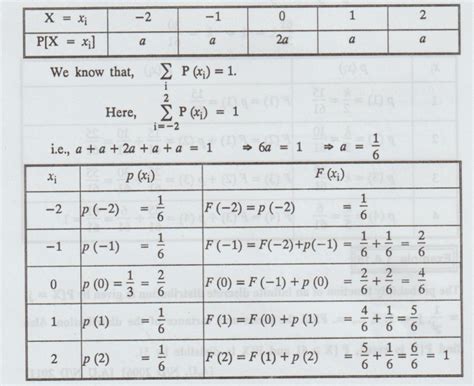 X = xᵢ −2 −1 0 1 2
P[X = xᵢ] a a 2a a a
We know that, ∑ᵢ P (xᵢ) = 1.
Here, ∑_{i=−2}^{2} P (xᵢ) = 1
i.e., a + a + 2a + a + a = 1 ⇒ 6a = 1 ⇒ a = 1/6
xᵢ p (xᵢ) F (xᵢ)
−2 p (−2) = 1/6 F (−2) = p (−2) = 1/6
−1 p (−1) = 1/6 F (−1) = F (−2)+p(−1) = 1/6 + 1/6 = 2/6
0 p (0) = 1/3 = 2/6 F (0) = F (−1) + p (0) = 2/6 + 2/6 = 4/6
1 p (1) = 1/6 F (1) = F (0) + p (1) = 4/6 + 1/6 = 5/6
2 p (2) = 1/6 F (2) = F (1) + p (2) = 5/6 + 1/6 = 6/6 = 1